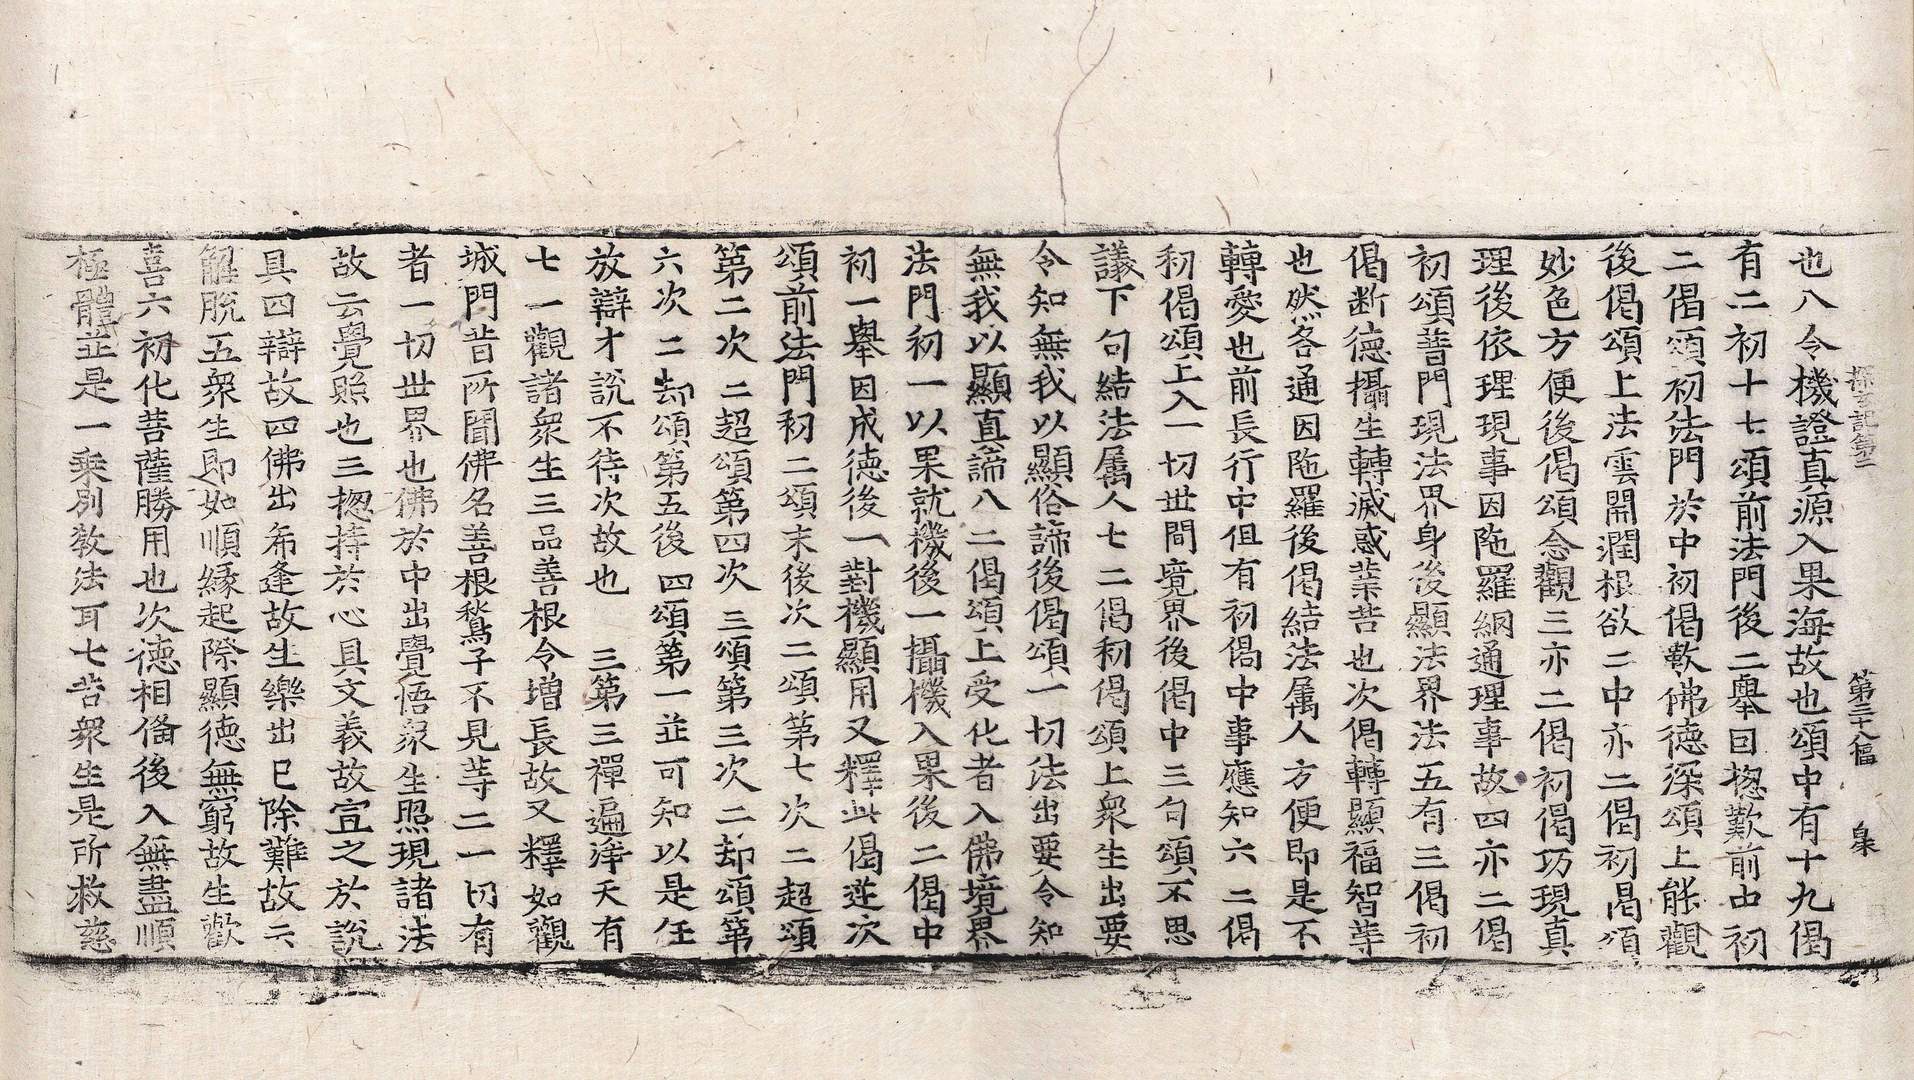 探玄記第二 第三十八幅 泉
也八令機證真源入果海故也頌中有十九偈
有二初十七頌前法門後二舉因揔歎前中初
二偈頌初法門於中初偈歎佛德深頌上能觀
後偈頌上法雲開潤根欲二中亦二偈初偈頌
妙色方便後偈頌念觀三亦二偈初偈巧現真
理後依理現事因陁羅網通理事故四亦二偈
初頌普門現法界身後顯法界法五有三偈初
偈断德攝生轉滅惑業苦也次偈轉顯福智等
也然各通因陁羅後偈結法属人方便即是不
轉愛也前長行中但有初偈中事應知六二偈
初偈頌上入一切世間境界後偈中三句頌不思
議下句結法属人七二偈初偈頌上衆生出要
令知無我以顯俗諦後偈頌一切法出要令知
無我以顯真諦八二偈頌上受化者入佛境界
法門初一以果就機後一攝機入果後二偈中
初一舉因成德後一對機顯用又釋此偈逆次
頌前法門初二頌末後次二頌第七次二超頌
第二次二超頌第四次三頌第三次二却頌第
六次二却頌第五後四頌第一並可知以是任
放辯才說不待次故也 三第三禪遍淨天有
七一觀諸衆生三品善根令增長故又釋如觀
城門昔所聞佛名善根鶖子不見等二一切有
者一切世界也佛於中出覺悟衆生照現諸法
故云覺照也三揔持於心具文義故宣之於說
具四辯故四佛出希逢故生樂出已除難故云
解脫五衆生即如順緣起際顯德無窮故生歡
喜六初化菩薩勝用也次德相備後入無盡順
極體並是一乘別教法耳七苦衆生是所救慈